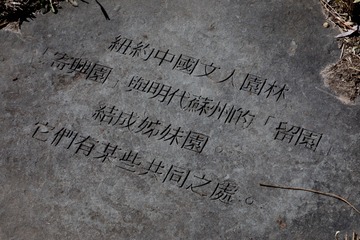 紐約中國文人園林
「寄興園」與明代蘇州的「留園」
結成姊妹園。
它們有某些共同之處。